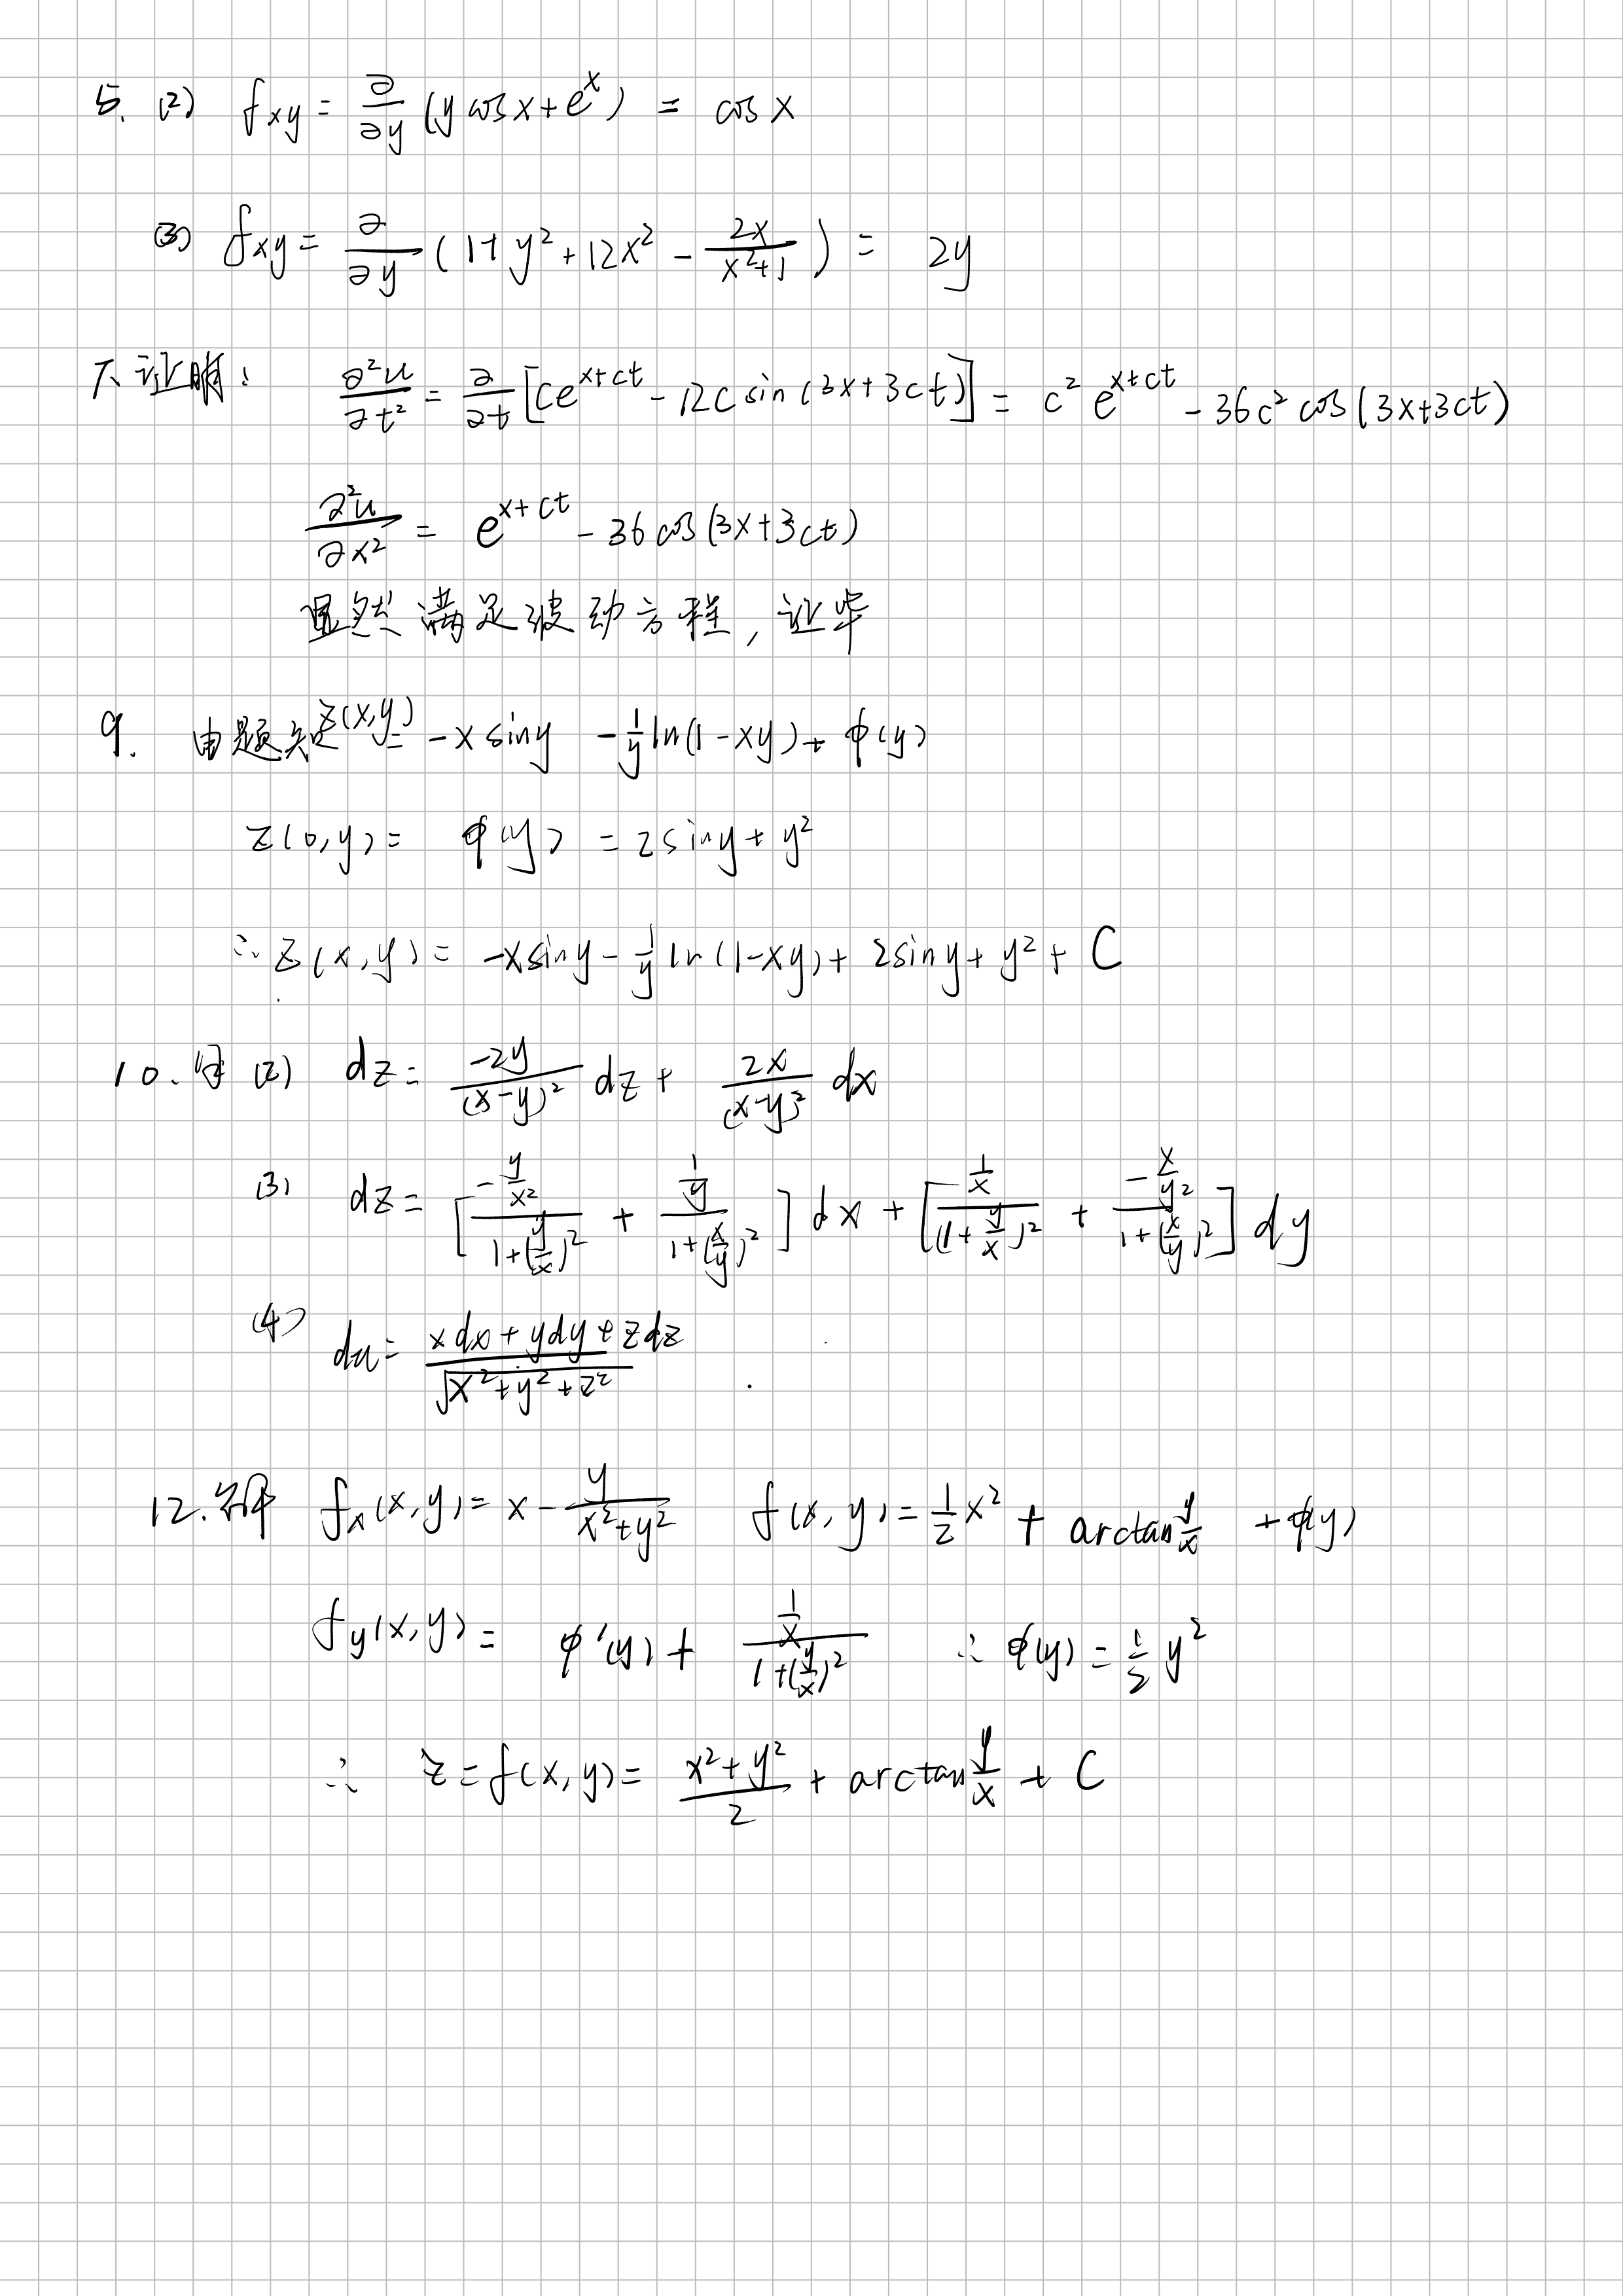 5. (2) f_{xy} = ∂/∂y (y cos x + e^x) = cos x
(3) f_{xy} = ∂/∂y (1 + y² + 12x² - 2x/(x²+1)) = 2y
7. 证明: ∂²u/∂t² = ∂/∂t [ce^{x+ct} - 12c sin(3x+3ct)] = c² e^{x+ct} - 36c² cos(3x+3ct)
∂²u/∂x² = e^{x+ct} - 36 cos(3x+3ct)
显然满足波动方程, 证毕
9. 由题知 z(x,y) = -x sin y - 1/y ln(1-xy) + φ(y)
z(0,y) = φ(y) = 2 sin y + y²
∴ z(x,y) = -x sin y - 1/y ln(1-xy) + 2 sin y + y² + C
10. (2) dz = -2y/(x-y)² dz + 2x/(x-y)² dx
(3) dz = [(-y/x²)/(1+(y/x)²) + (1/y)/(1+(x/y)²)] dx + [(1/x)/(1+y/x)² + (-x/y²)/(1+(x/y)²)] dy
(4) du = (x dx + y dy + z dz)/√(x²+y²+z²)
12. 解 f_x(x,y) = x - y/(x²+y²) f(x,y) = 1/2 x² + arctan y/x + φ(y)
f_y(x,y) = φ'(y) + (1/x)/(1+(y/x)²) ∴ φ(y) = 1/2 y²
∴ z = f(x,y) = (x²+y²)/2 + arctan y/x + C